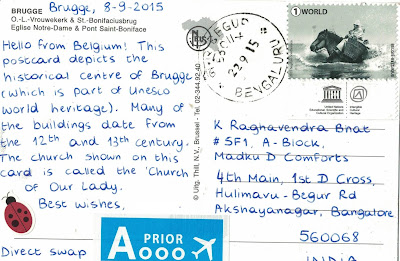 Brugge, 8-9-2015
BRUGGE
O.-L.-Vrouwekerk & St.-Bonifaciusbrug
Eglise Notre-Dame & Pont Saint-Boniface
Hello from Belgium! This
postcard depicts the
historical centre of Brugge
(which is part of Unesco
world heritage). Many of
the buildings date from
the 12th and 13th century.
The church shown on
this card is called the 'Church
of Our Lady.
Best wishes,
Direct swap
A PRIOR
© Uitg. Thill, N.V., Brussel - Tel. 02-344.92.40
22.9.15
BENGALURU
1 WORLD
K Raghavendra Bhat
# SF1, A-Block,
Madhu D Comforts
4th Main, 1st D Cross,
Hulimavu-Begur Rd
Akshayanagar, Bangalore
560068
INDIA